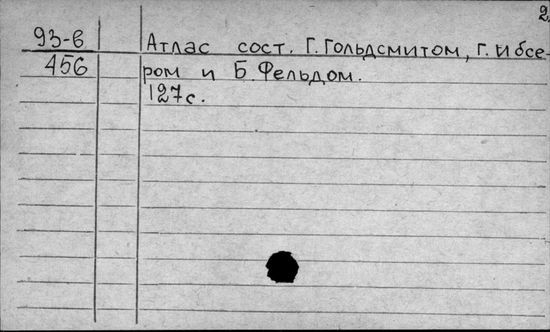 2
93-в Атлас сост. Г. Гольдсмитом, Г. Ибсе-
456 ром и Б. Фельдом.
127 с.